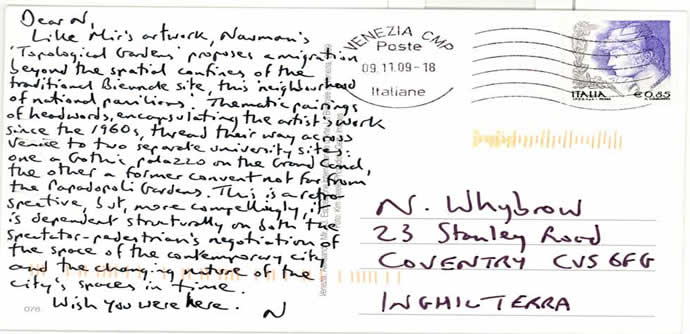 Dear N,
Like Mir's artwork, Nauman's
'Topological Gardens' proposes a migration
beyond the spatial confines of the
traditional Biennale site, this neighbourhood
of national pavilions. Thematic pairings
of headwords, encapsulating the artist's work
since the 1960s, thread their way across
Venice to two separate university sites:
one a Gothic palazzo on the Grand Canal,
the other a former convent not far from
the Papadopoli Gardens. This is a retro-
spective, but, more compellingly, it
is dependent structurally on both the
spectator-pedestrian's negotiation of
the space of the contemporary city
and the changing nature of the
city's spaces in time.
Wish you were here. N
078
VENEZIA CMP
Poste
09.11.09-18
Italiane
ITALIA
€0,85
N. Whybrow
23 Stanley Road
COVENTRY CV5 6FG
INGHILTERRA